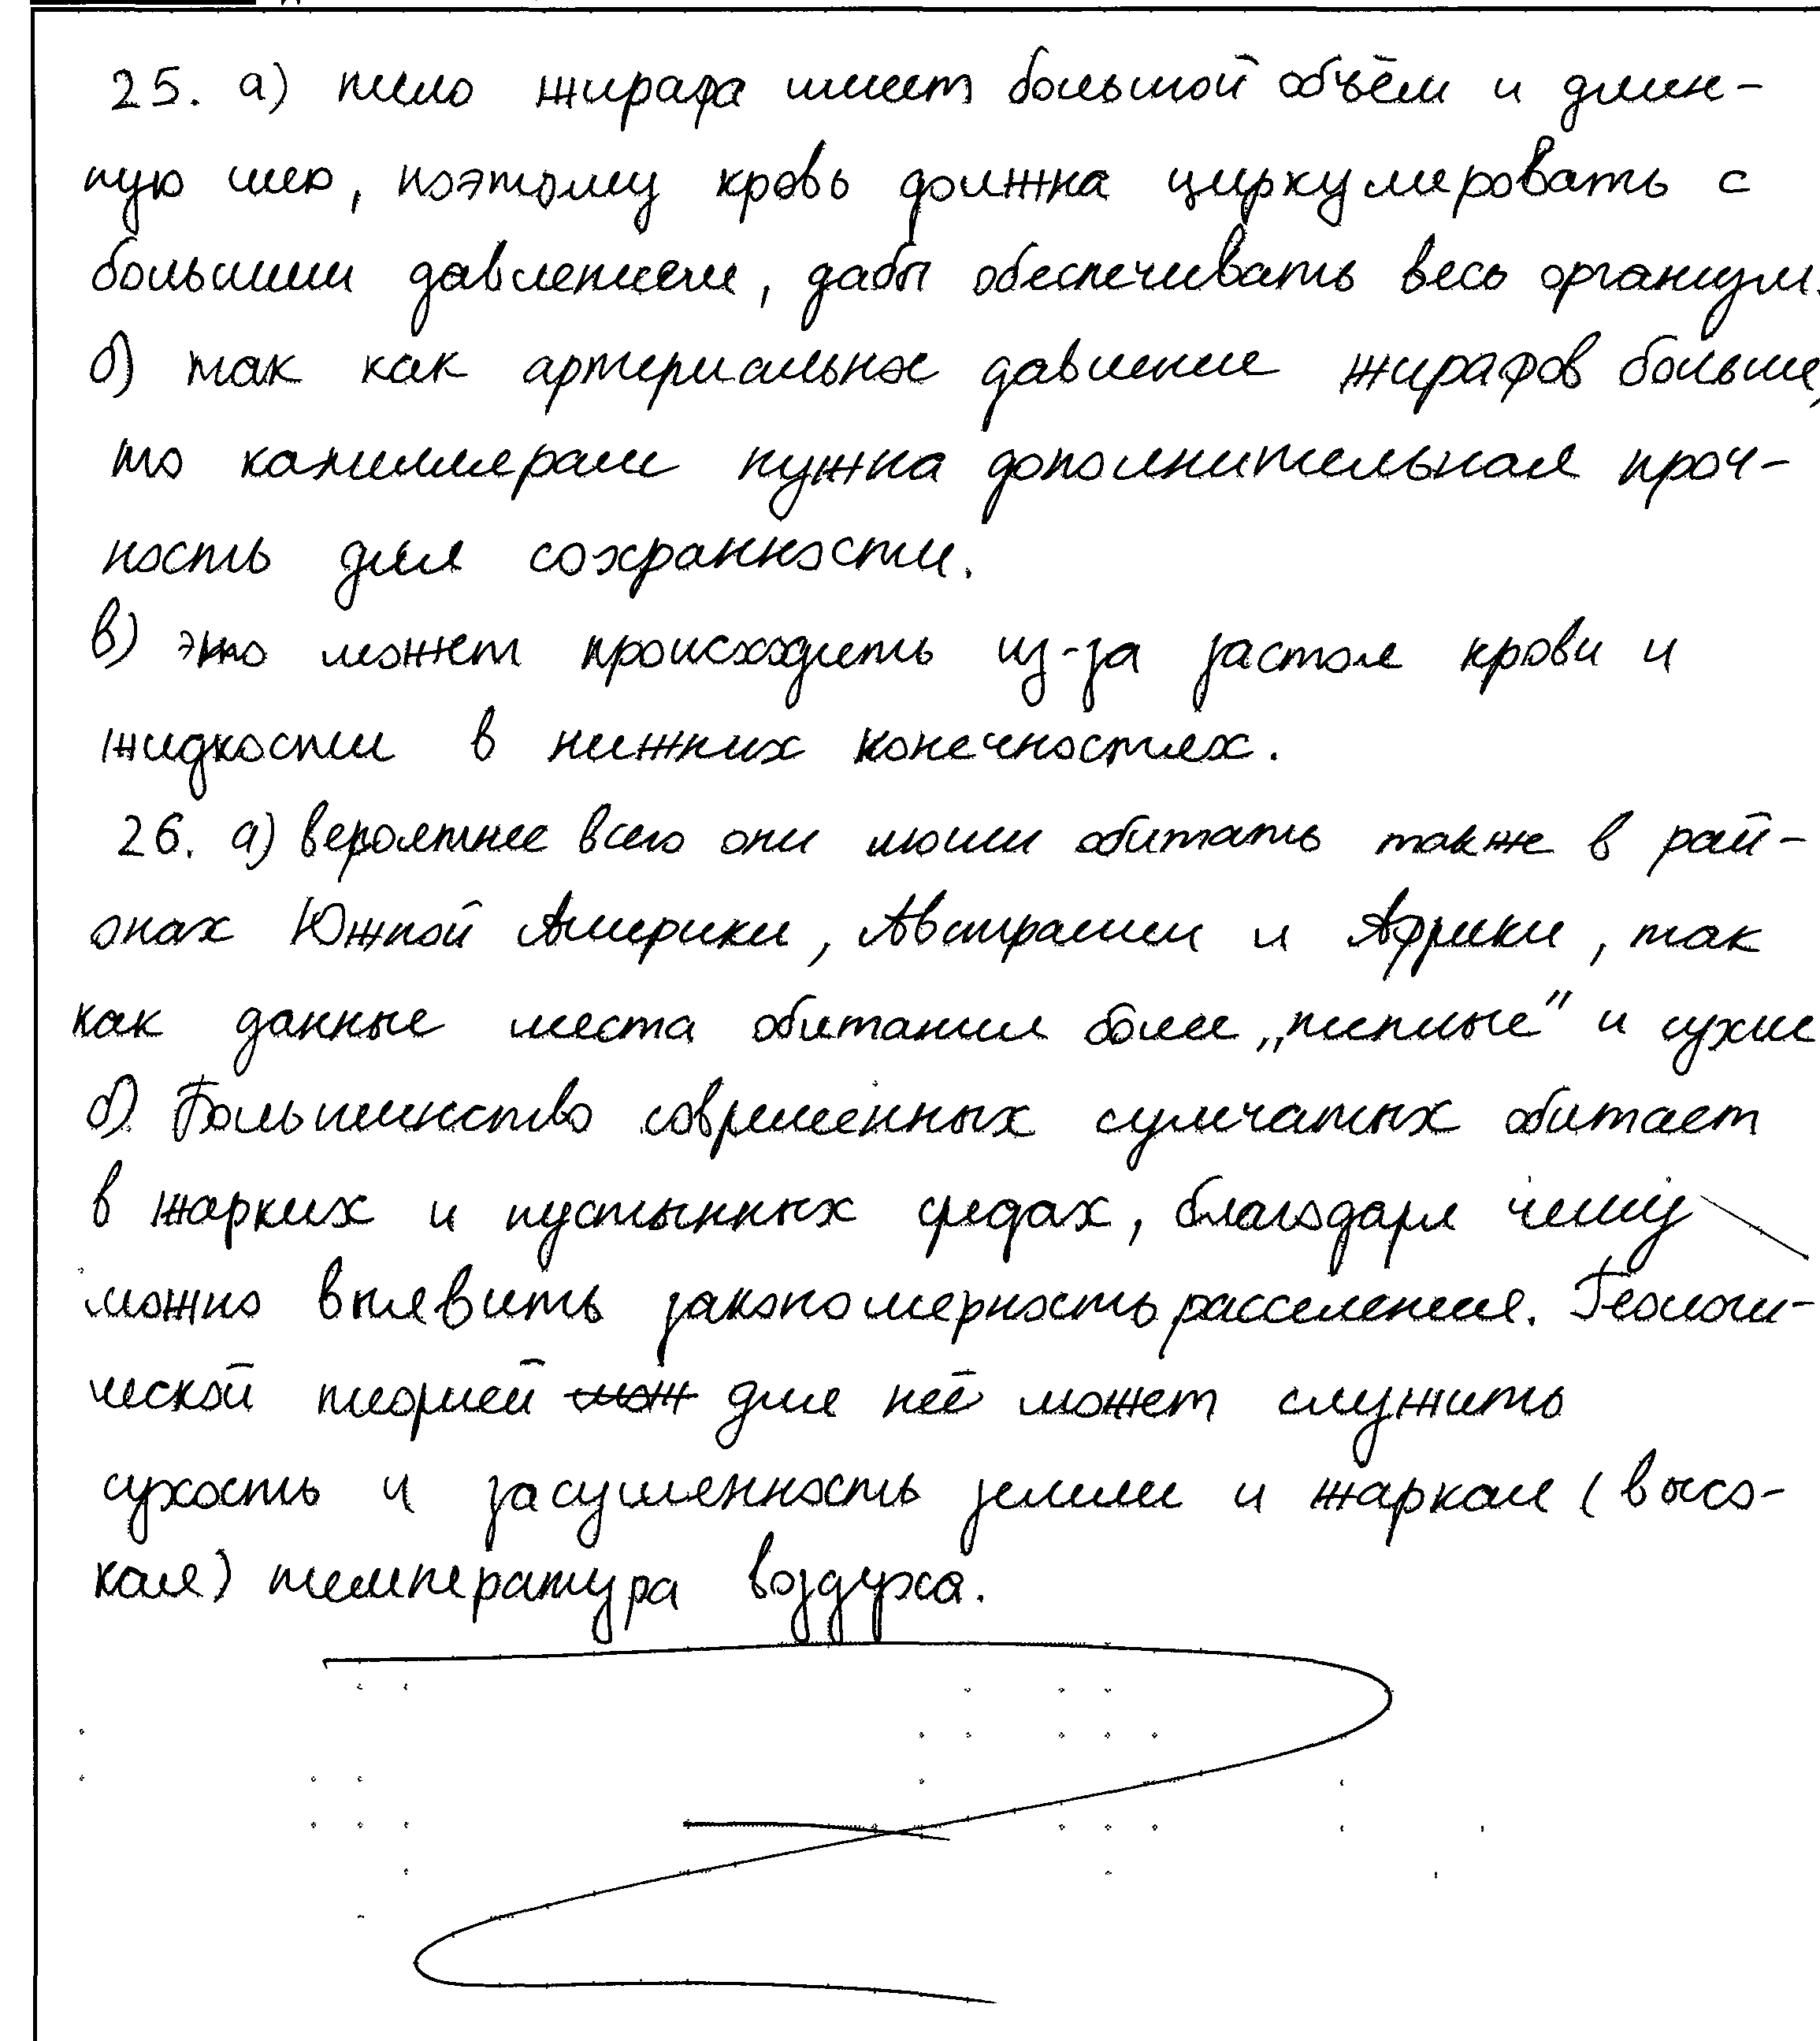 25. а) тело жирафа имеет большой объём и длин-
ную шею, поэтому кровь должна циркулировать с
большим давлением, дабы обеспечивать весь организм.
б) так как артериальное давление жирафов больше,
то капиллярам нужна дополнительная проч-
ность для сохранности.
в) это может происходить из-за застоя крови и
жидкости в нижних конечностях.
26. а) вероятнее всего они могли обитать также в рай-
онах Южной Америки, Австралии и Африки, так
как данные места обитания более „типные" и сухие
б) Большинство современных сумчатых обитает
в жарких и пустынных средах, благодаря чему
можно выявить закономерность расселения. Геологи-
ческой теорией для неё может служить
сухость и засушенность земли и жаркая (высо-
кая) температура воздуха.